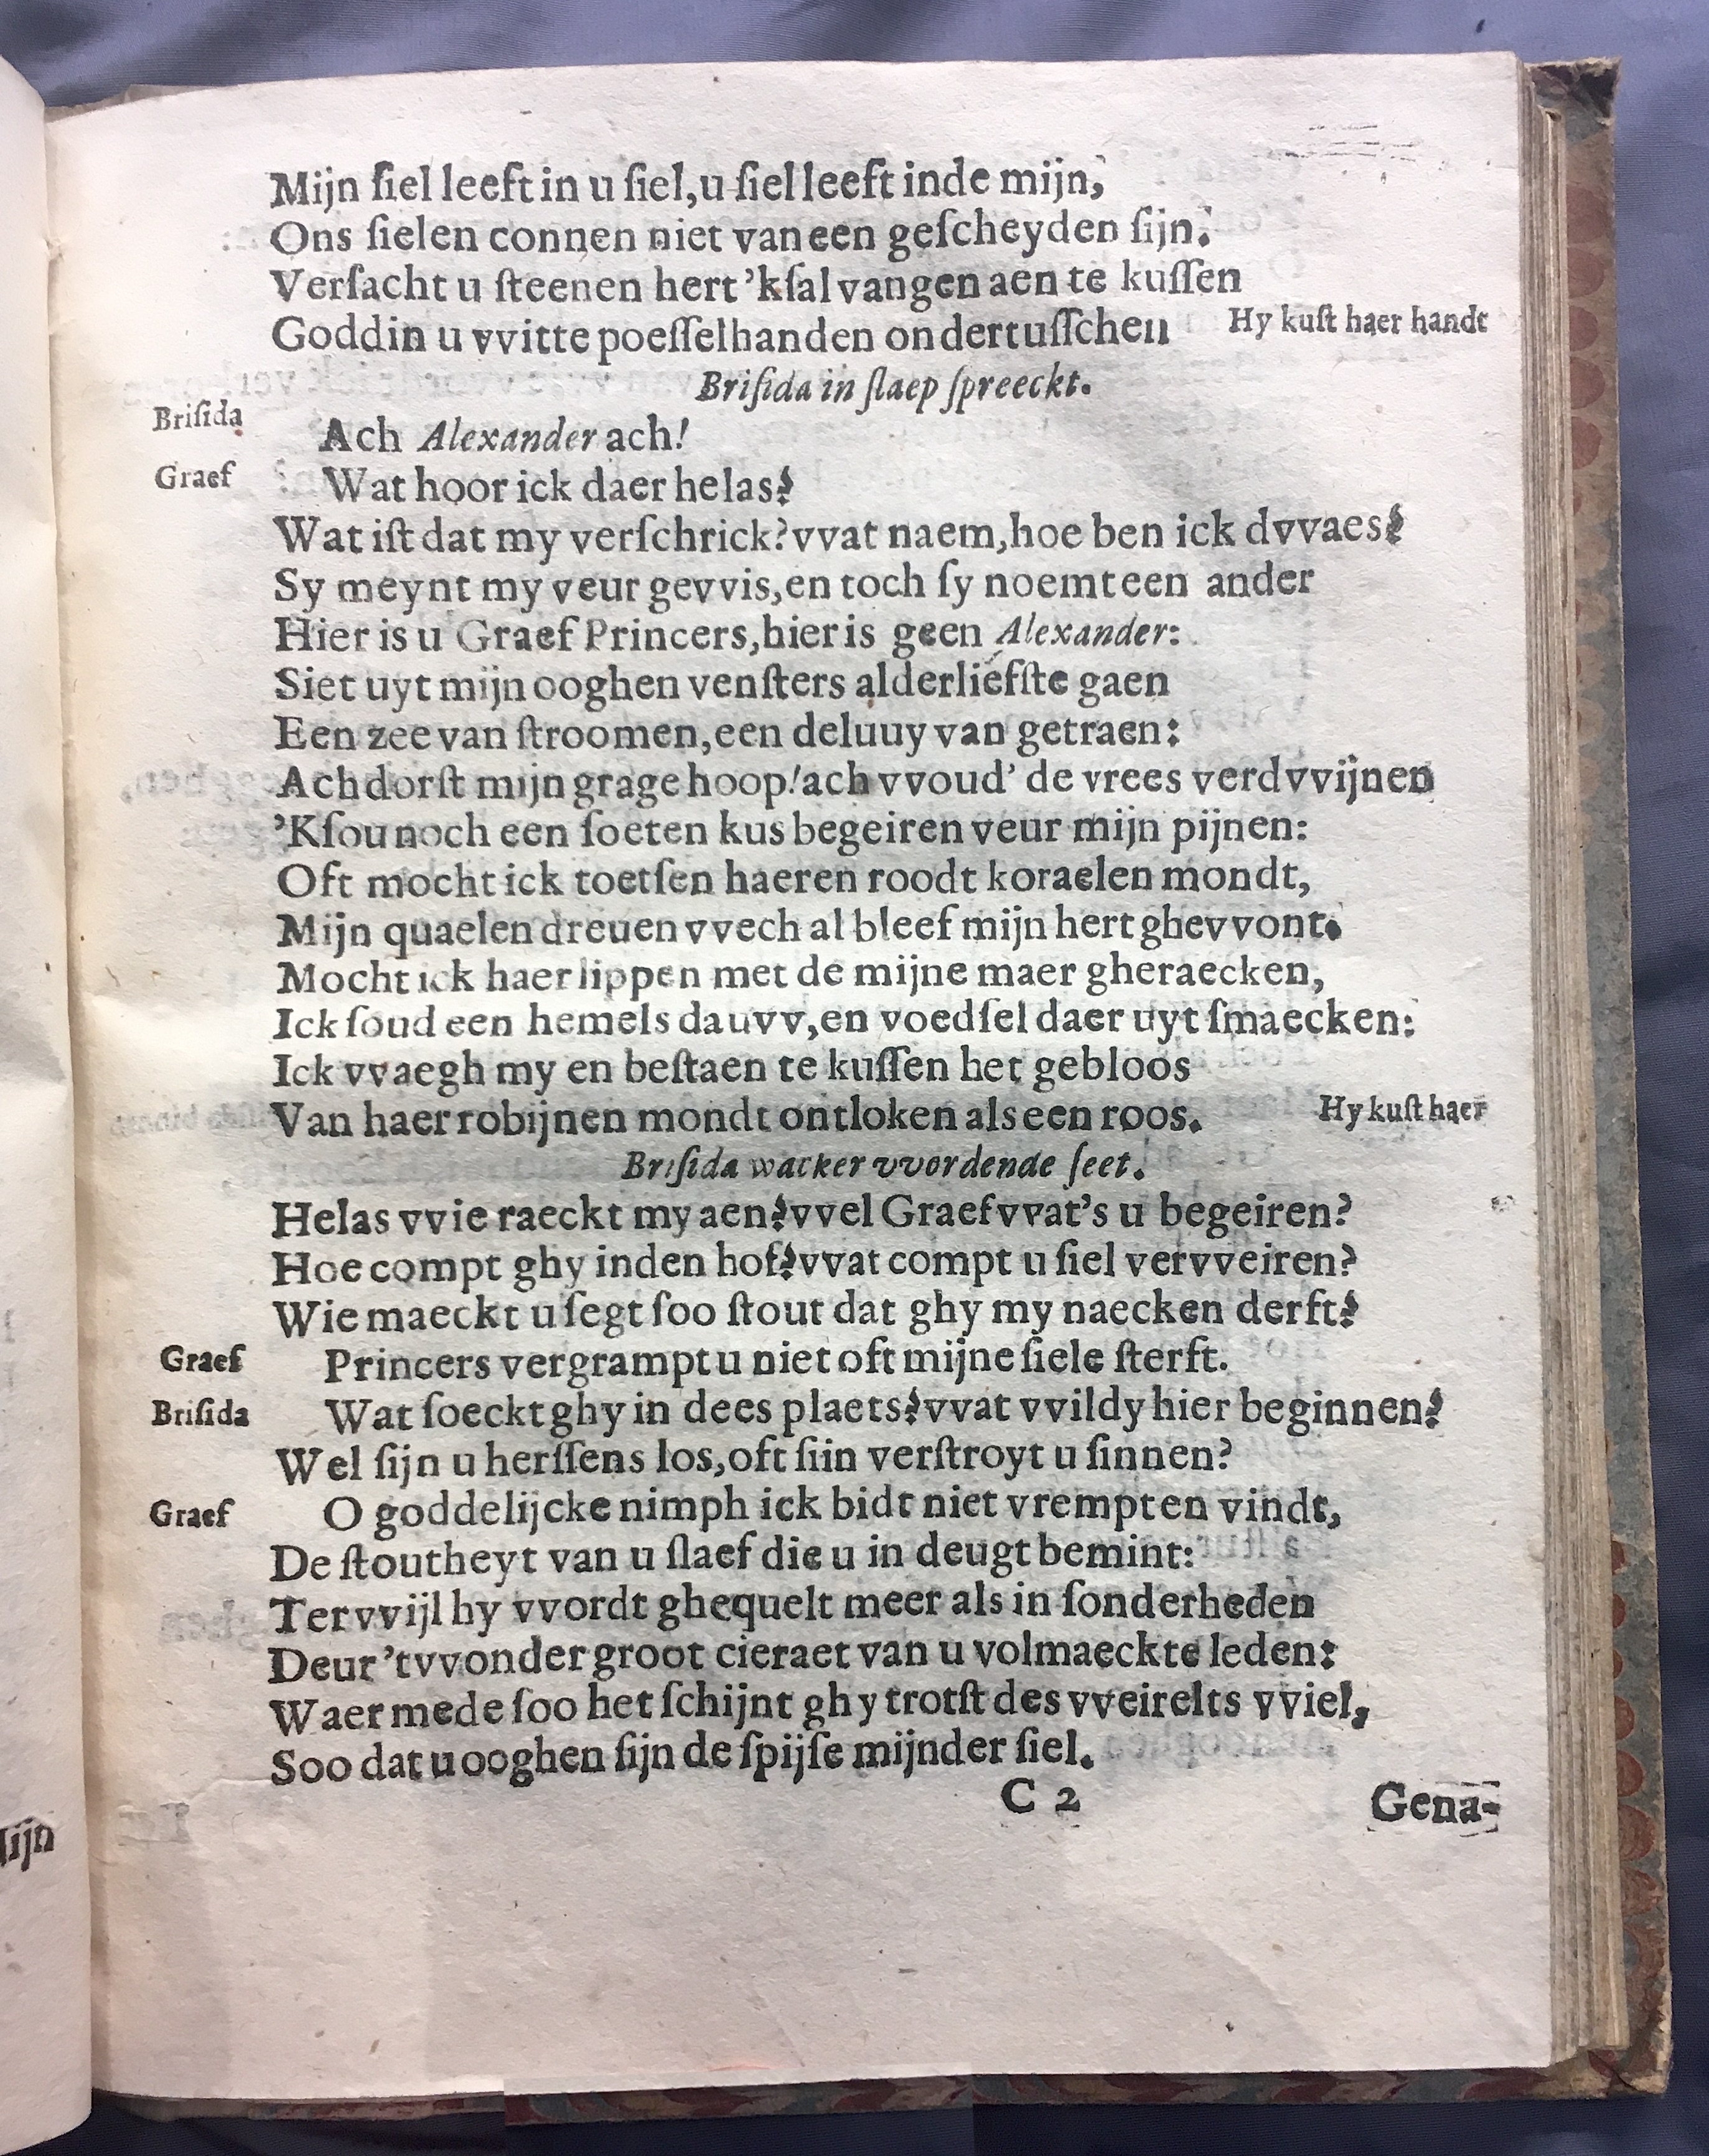 Mijn ſiel leeft in u ſiel, u ſiel leeft inde mijn,
Ons ſielen connen niet van een geſcheyden ſijn.
Verſacht u ſteenen hert 'kſal vangen aen te kuſſen
Goddin u vvitte poeſſelhanden ondertuſſchen
Hy kuſt haer hande
Briſida in ſlaep ſpreeckt.
Briſida Ach Alexander ach!
Graef Wat hoor ick daer helas?
Wat iſt dat my verſchrick? vvat naem, hoe ben ick dvvaes?
Sy meynt my veur gevvis, en toch ſy noemt een ander
Hier is u Graef Princers, hier is geen Alexander:
Siet uyt mijn ooghen venſters alderliefſte gaen
Een zee van ſtroomen, een deluuy van getraen:
Ach dorſt mijn grage hoop! ach vvoud' de vrees verdvvijnen
'Kſou noch een ſoeten kus begeiren veur mijn pijnen:
Oft mocht ick toetſen haeren roodt koraelen mondt,
Mijn quaelen dreuen vvech al bleef mijn hert ghevvont.
Mocht ick haer lippen met de mijne maer gheraecken,
Ick ſoud een hemels dauvv, en voedſel daer uyt ſmaecken:
Ick vvaegh my en beſtaen te kuſſen het gebloos
Van haer robijnen mondt ontloken als een roos.
Hy kuſt haer
Briſida wacker vvordende ſeet.
Helas vvie raeckt my aen? vvel Graef vvat's u begeiren?
Hoe compt ghy inden hof? vvat compt u ſiel vervveiren?
Wie maeckt u ſegt ſoo ſtout dat ghy my naecken derft?
Graef Princers vergrampt u niet oft mijne ſiele ſterft.
Briſida Wat ſoeckt ghy in dees plaets? vvat vvildy hier beginnen?
Wel ſijn u herſſens los, oft ſiin verſtroyt u ſinnen?
Graef O goddelijcke nimph ick bidt niet vrempt en vindt,
De ſtoutheyt van u ſlaef die u in deugt bemint:
Tervvijl hy vvordt ghequelt meer als in ſonderheden
Deur 'tvvonder groot cieraet van u volmaeckte leden:
Waer mede ſoo het ſchijnt ghy trotſt des vveirelts vviel,
Soo dat u ooghen ſijn de ſpijſe mijnder ſiel.
C 2 Gena-